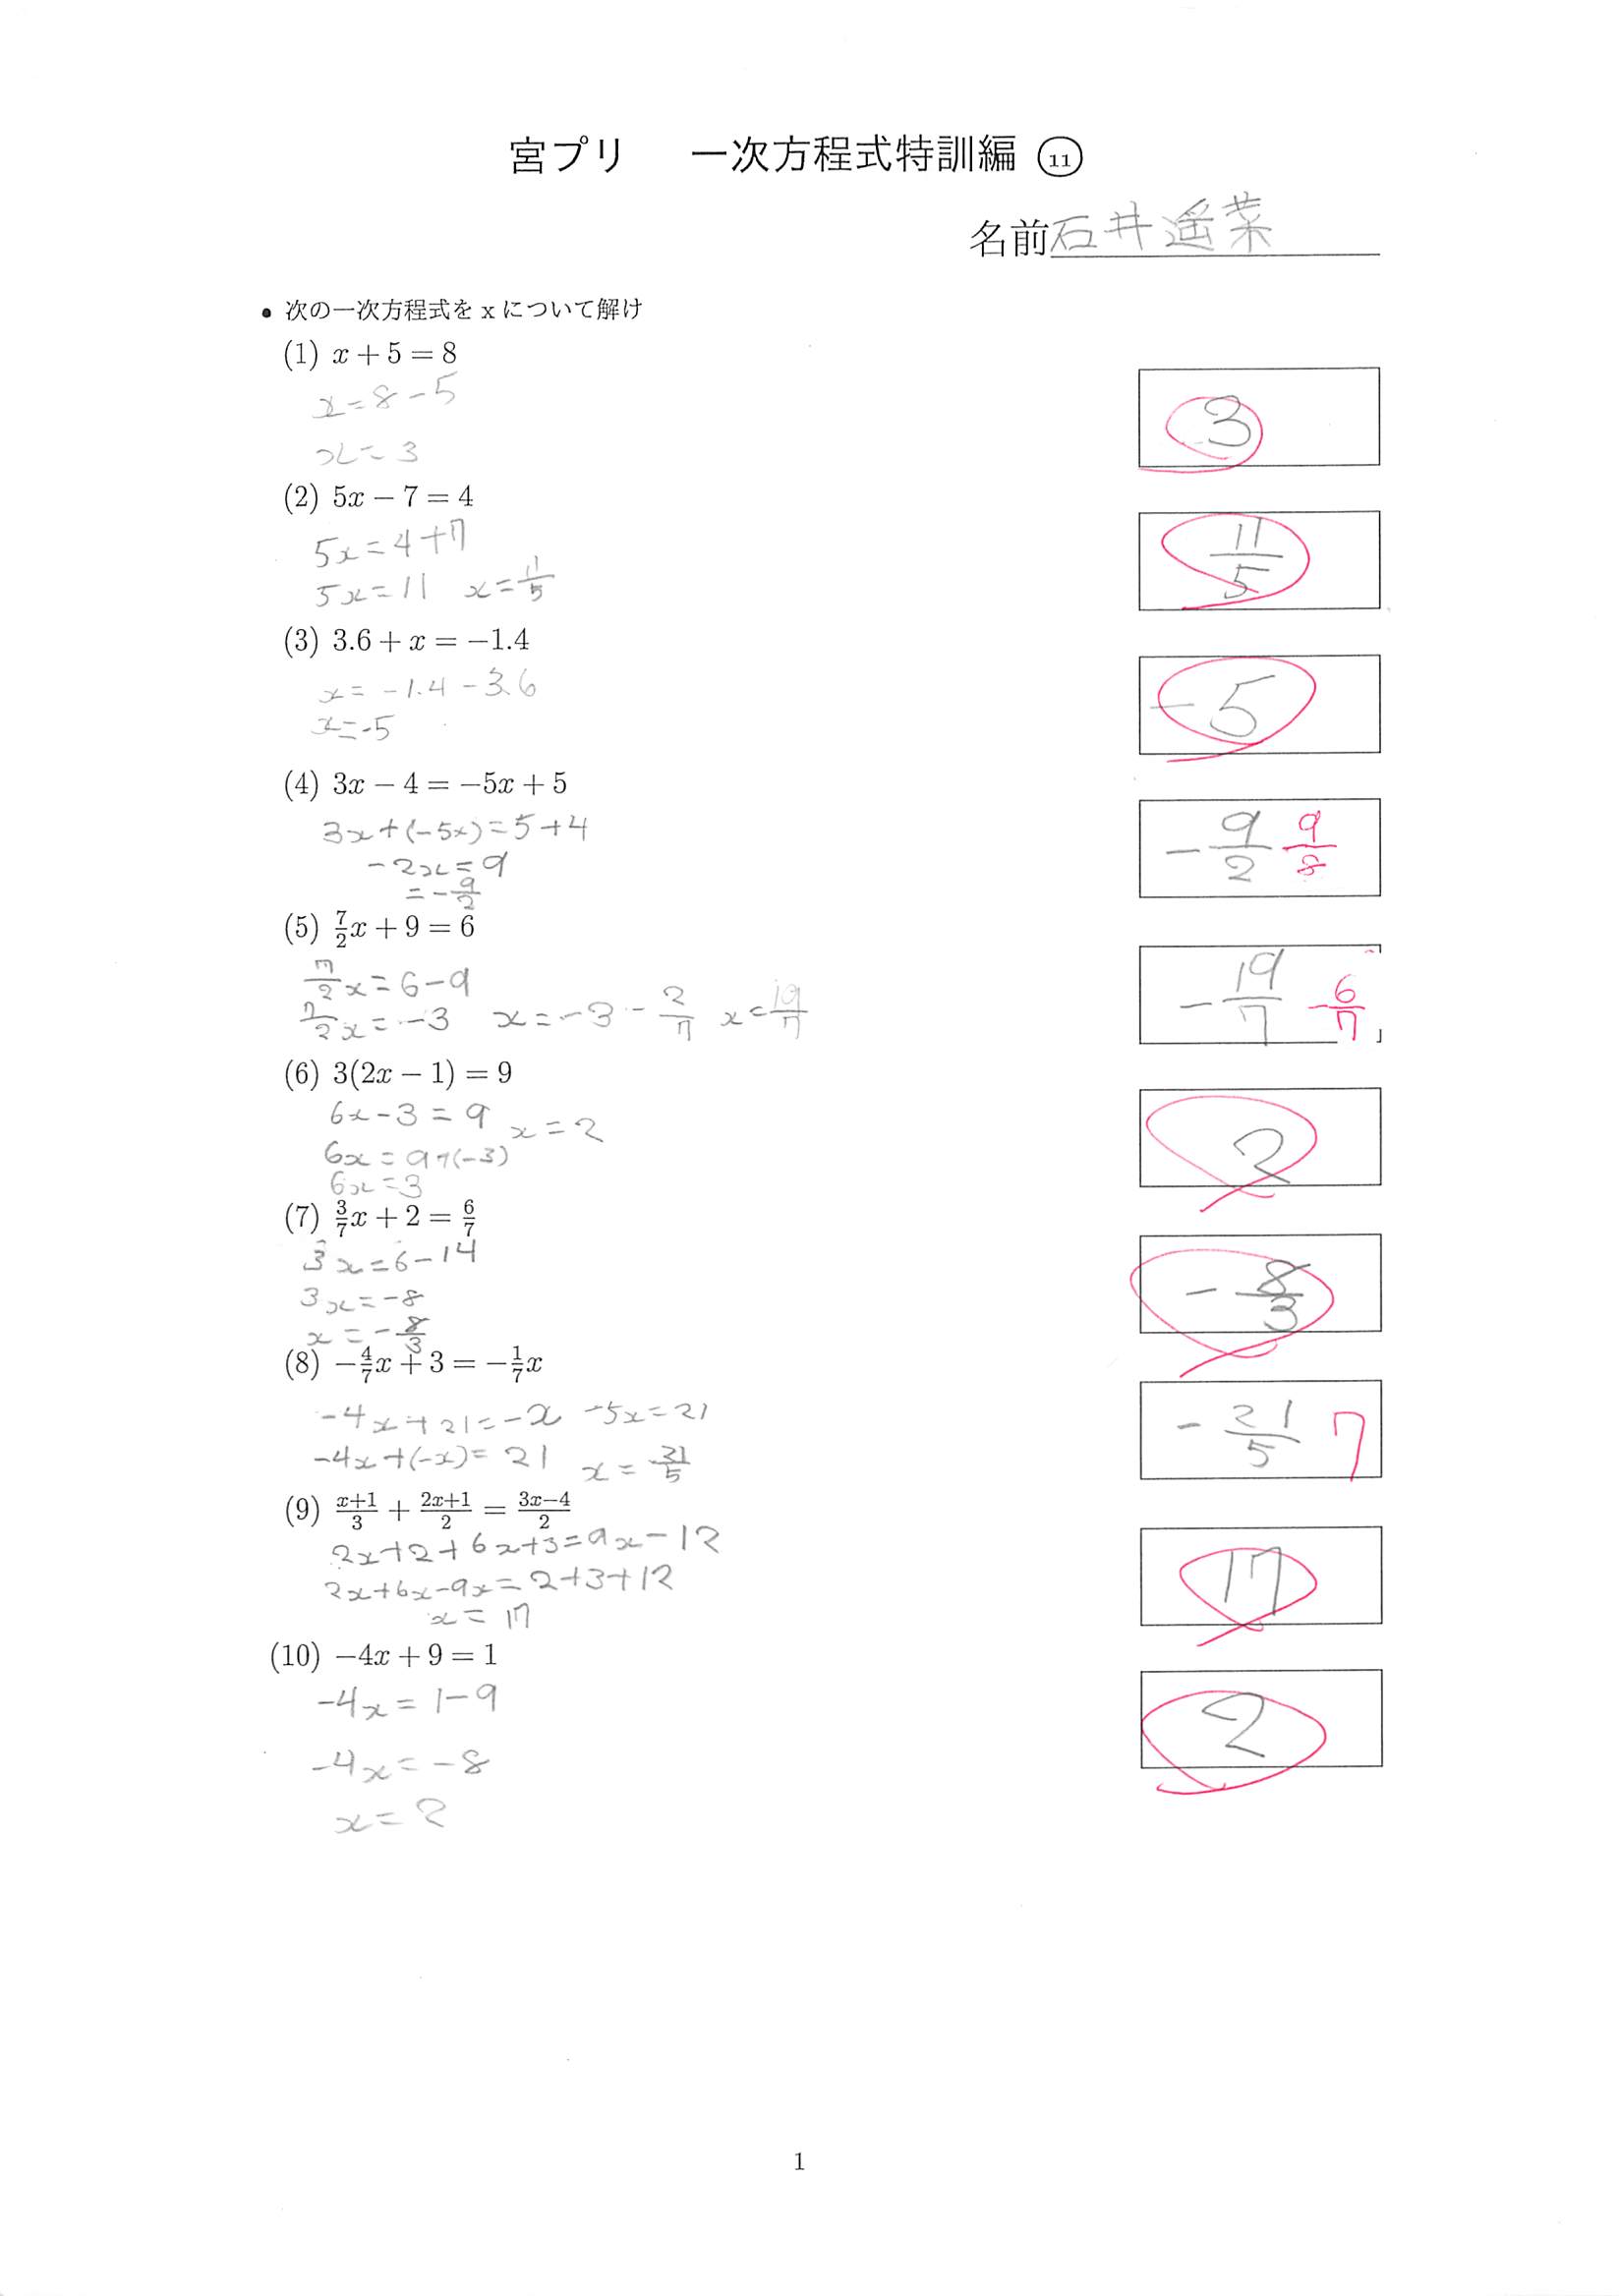 宮プリ 一次方程式特訓編 ⑪
名前 石井遥菜
• 次の一次方程式を x について解け
(1) x + 5 = 8
x = 8 - 5
x = 3
3
(2) 5x − 7 = 4
5x = 4 + 7
5x = 11 x = 11/5
11/5
(3) 3.6 + x = −1.4
x = -1.4 - 3.6
x = -5
-5
(4) 3x − 4 = −5x + 5
3x + (-5x) = 5 + 4
-2x = 9
= -9/2
-9/2 9/8
(5) 7/2x + 9 = 6
7/2x = 6 - 9
7/2x = -3 x = -3 - 2/7 x = 19/7
-19/7 -6/7
(6) 3(2x − 1) = 9
6x - 3 = 9 x = 2
6x = 9 + (-3)
6x = 3
2
(7) 3/7x + 2 = 6/7
3x = 6 - 14
3x = -8
x = -8/3
-8/3
(8) −4/7x + 3 = −1/7x
-4x + 21 = -x -5x = 21
-4x + (-x) = 21 x = -21/5
-21/5 7
(9) x+1/3 + 2x+1/2 = 3x−4/2
2x + 2 + 6x + 3 = 9x - 12
2x + 6x - 9x = 2 + 3 + 12
x = 17
17
(10) −4x + 9 = 1
-4x = 1 - 9
-4x = -8
x = 2
2
1